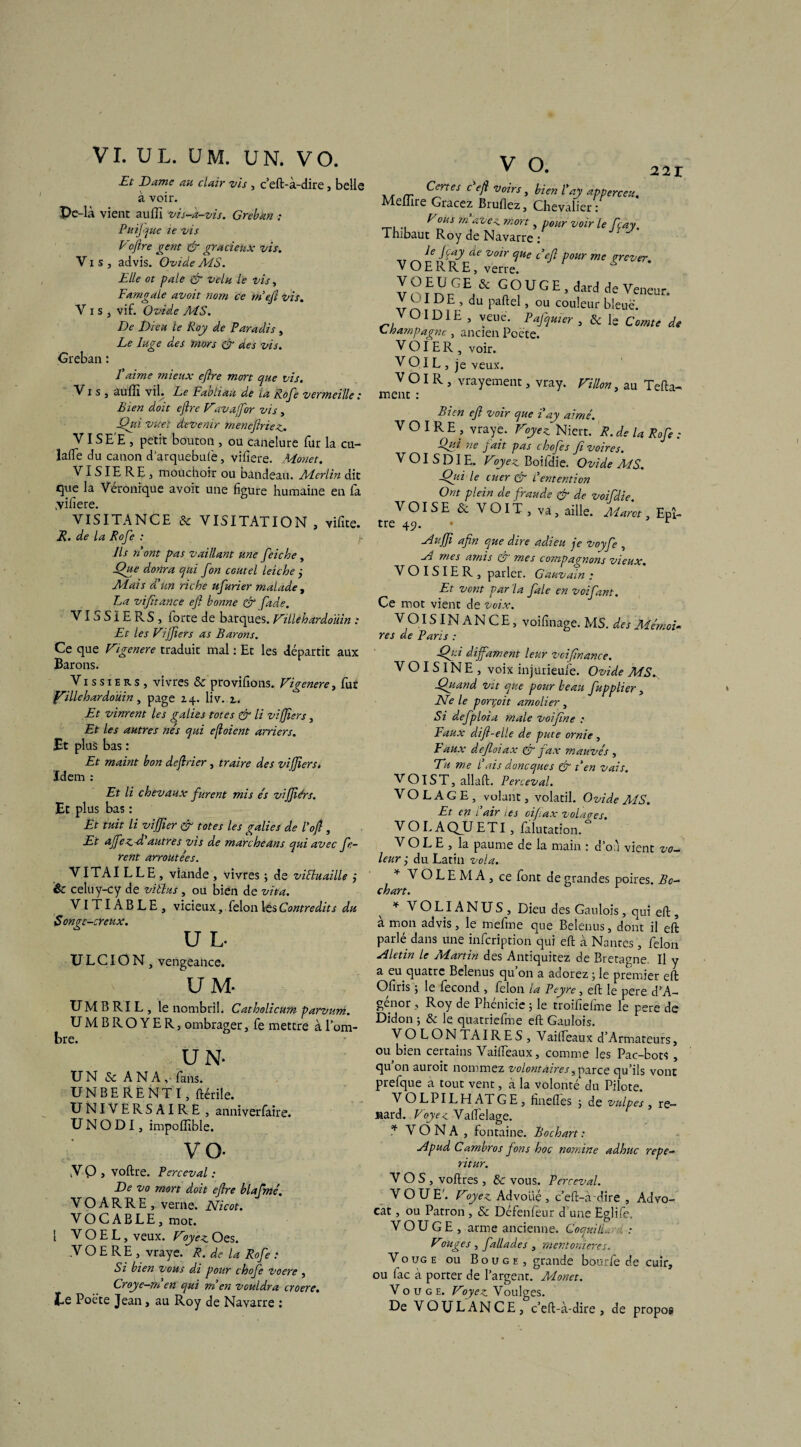 VI. UL. UM. UN. VO.
Et Dame au clair vis, c'est-à-dire, belle
à voir.
De-là vient aussi vis-à-vis. Greban :
Puisque ie vis
Vostre gent & gracieux vis.
VIS, advis. Ovide MS.
Elle ot pale & velu le vis,
Famgale avoit nom ce m'est vis.
VIS, vif. Ovide MS.
De Dieu le Roy de Paradis,
Le Iuge des mors & des vis.
Greban :
I'aime mieux estre mort que vis.
VIS, aussi vil. Le Fabliau de la Rose vermeille :
Bien doit estre Vavassor vis,
Qui vuet devenir menestriez.
VISEE, petit bouton, ou canelure sur la cu-
lasse du canon d'arquebuse, visiere. Monet.
VISIERE, mouchoir ou bandeau. Merlin dit
que la Véronique avoit une figure humaine en sa
visiere.
VISITANCE & VISITATION, visite.
R. de la Rose :
Ils n'ont pas vaillant une seiche,
Que donra qui son coutel leiche ;
Mais d'un riche usurier malade,
La visitance est bonne & sade.
VISSIERS, sorte de barques. Villehardoüin :
Et les Vissiers as Barons.
Ce que Vigenere traduit mal : Et les départit aux
Barons.
VISSIERS, vivres & provisions. Vigenere, sur
Villehardoüin, page 24. liv. 2.
Et vinrent les galies totes & li vissiers,
Et les autres nés qui estoient arriers.
Et plus bas :
Et maint bon destrier, traire des vissiers.
Idem :
Et li chevaux furent mis és vissiérs.
Et plus bas :
Et tuit li vissier & totes les galies de l'ost,
Et assez d'autres vis de marcheans qui avec se-
rent arroutées.
VITAILLE, viande, vivres ; de victuaille ;
& celuy-cy de victus, ou bien de vita.
VITIABLE, vicieux, selon les Contredits du
Songe-creux.
UL.
ULCION, vengeance.
UM.
UMBRIL, le nombril. Catholicum parvum.
UMBROYER, ombrager, se mettre à l'om-
bre.
UN.
UN & ANA, sans.
UNBERENTI, stérile.
UNIVERSAIRE, anniversaire.
UNODI, impossible.
VO.
VO, vostre. Perceval :
De vo mort doit estre blasmé.
VOARRE, verne. Nicot.
VOCABLE, mot.
VOEL, veux. Voyez Oes.
VOERE, vraye. R. de la Rose :
Si bien vous di pour chose voere,
Croye-m'en qui m'en vouldra croere.
Le Poëte Jean, au Roy de Navarre :
VO. 221
Certes c'est voirs, bien l'ay apperceu.
Messire Gracez Bruslez, Chevalier :
Vous m'avez mort, pour voir le sçay.
Thibaut Roy de Navarre :
Ie sçay de voir que c'est pour me grever.
VOERRE, verre.
VOEUGE & GOUGE, dard de Veneur.
VOIDE, du pastel, ou couleur bleuë.
VOIDIE, veuë. Pasquier, & le Comte de
Champagne, ancien Poëte.
VOIER, voir.
VOIL, je veux.
VOIR, vrayement, vray. Villon, au Testa-
ment :
Bien est voir que i'ay aimé.
VOIRE, vraye. Voyez Niert. R. de la Rose :
Qui ne sait pas choses si voires.
VOISDIE. Voyez Boisdie. Ovide MS.
Qui le cuer & l'entention
Ont plein de fraude & de voisdie.
VOISE & VOIT, va, aille. Marot, Epî-
tre 49.
Aussi afin que dire adieu je voyse,
A mes amis & mes compagnons vieux.
VOISIER, parler. Gauvain :
Et vont par la sale en voisant.
Ce mot vient de voix.
VOISINANCE, voisinage. MS. des Mémoi-
res de Paris :
Qui diffament leur voisinance.
VOISINE, voix injurieuse. Ovide MS.
Quand vit que pour beau supplier,
Ne le porçoit amolier,
Si desploia male voisine :
Faux dist-elle de pute ornie,
Faux desloiax & fax mauvés,
Tu me lais doncques & t'en vais.
VOIST, allast. Perceval.
VOLAGE, volant, volatil. Ovide MS.
Et en l'air les oisiax volages.
VOLAQUETI, salutation.
VOLE, la paume de la main : d'où vient vo-
leur ; du Latin vola.
* VOLEMA, ce sont de grandes poires. Bo-
chart.
* VOLIANUS, Dieu des Gaulois, qui est,
à mon advis, le mesme que Belenus, dont il est
parlé dans une inscription qui est à Nantes, selon
Aletin le Martin des Antiquitez de Bretagne. Il y
a eu quatre Belenus qu'on a adorez ; le premier est
Osiris ; le second, selon la Peyre, est le pere d'A-
génor, Roy de Phénicie ; le troisiesme le pere de
Didon ; & le quatriesme est Gaulois.
VOLONTAIRES, Vaisseaux d'Armateurs,
ou bien certains Vaisseaux, comme les Pac-bots,
qu'on auroit nommez volontaires, parce qu'ils vont
presque à tout vent, à la volonté du Pilote.
VOLPILHATGE, finesses ; de vulpes, re-
nard. Voyez Vasselage.
* VONA, fontaine. Bochart :
Apud Cambros fons hoc nomine adhuc repe-
ritur.
VOS, vostres, & vous. Perceval.
VOUE'. Voyez Advoüé, c'est-à-dire, Advo-
cat, ou Patron, & Défenseur d'une Eglise.
VOUGE, arme ancienne. Coquillard :
Vouges, sallades, mentonieres.
VOUGE ou BOUGE, grande bourse de cuir,
ou sac à porter de l'argent. Monet.
VOUGE. Voyez Voulges.
De VOULANCE, c'est-à-dire, de propos